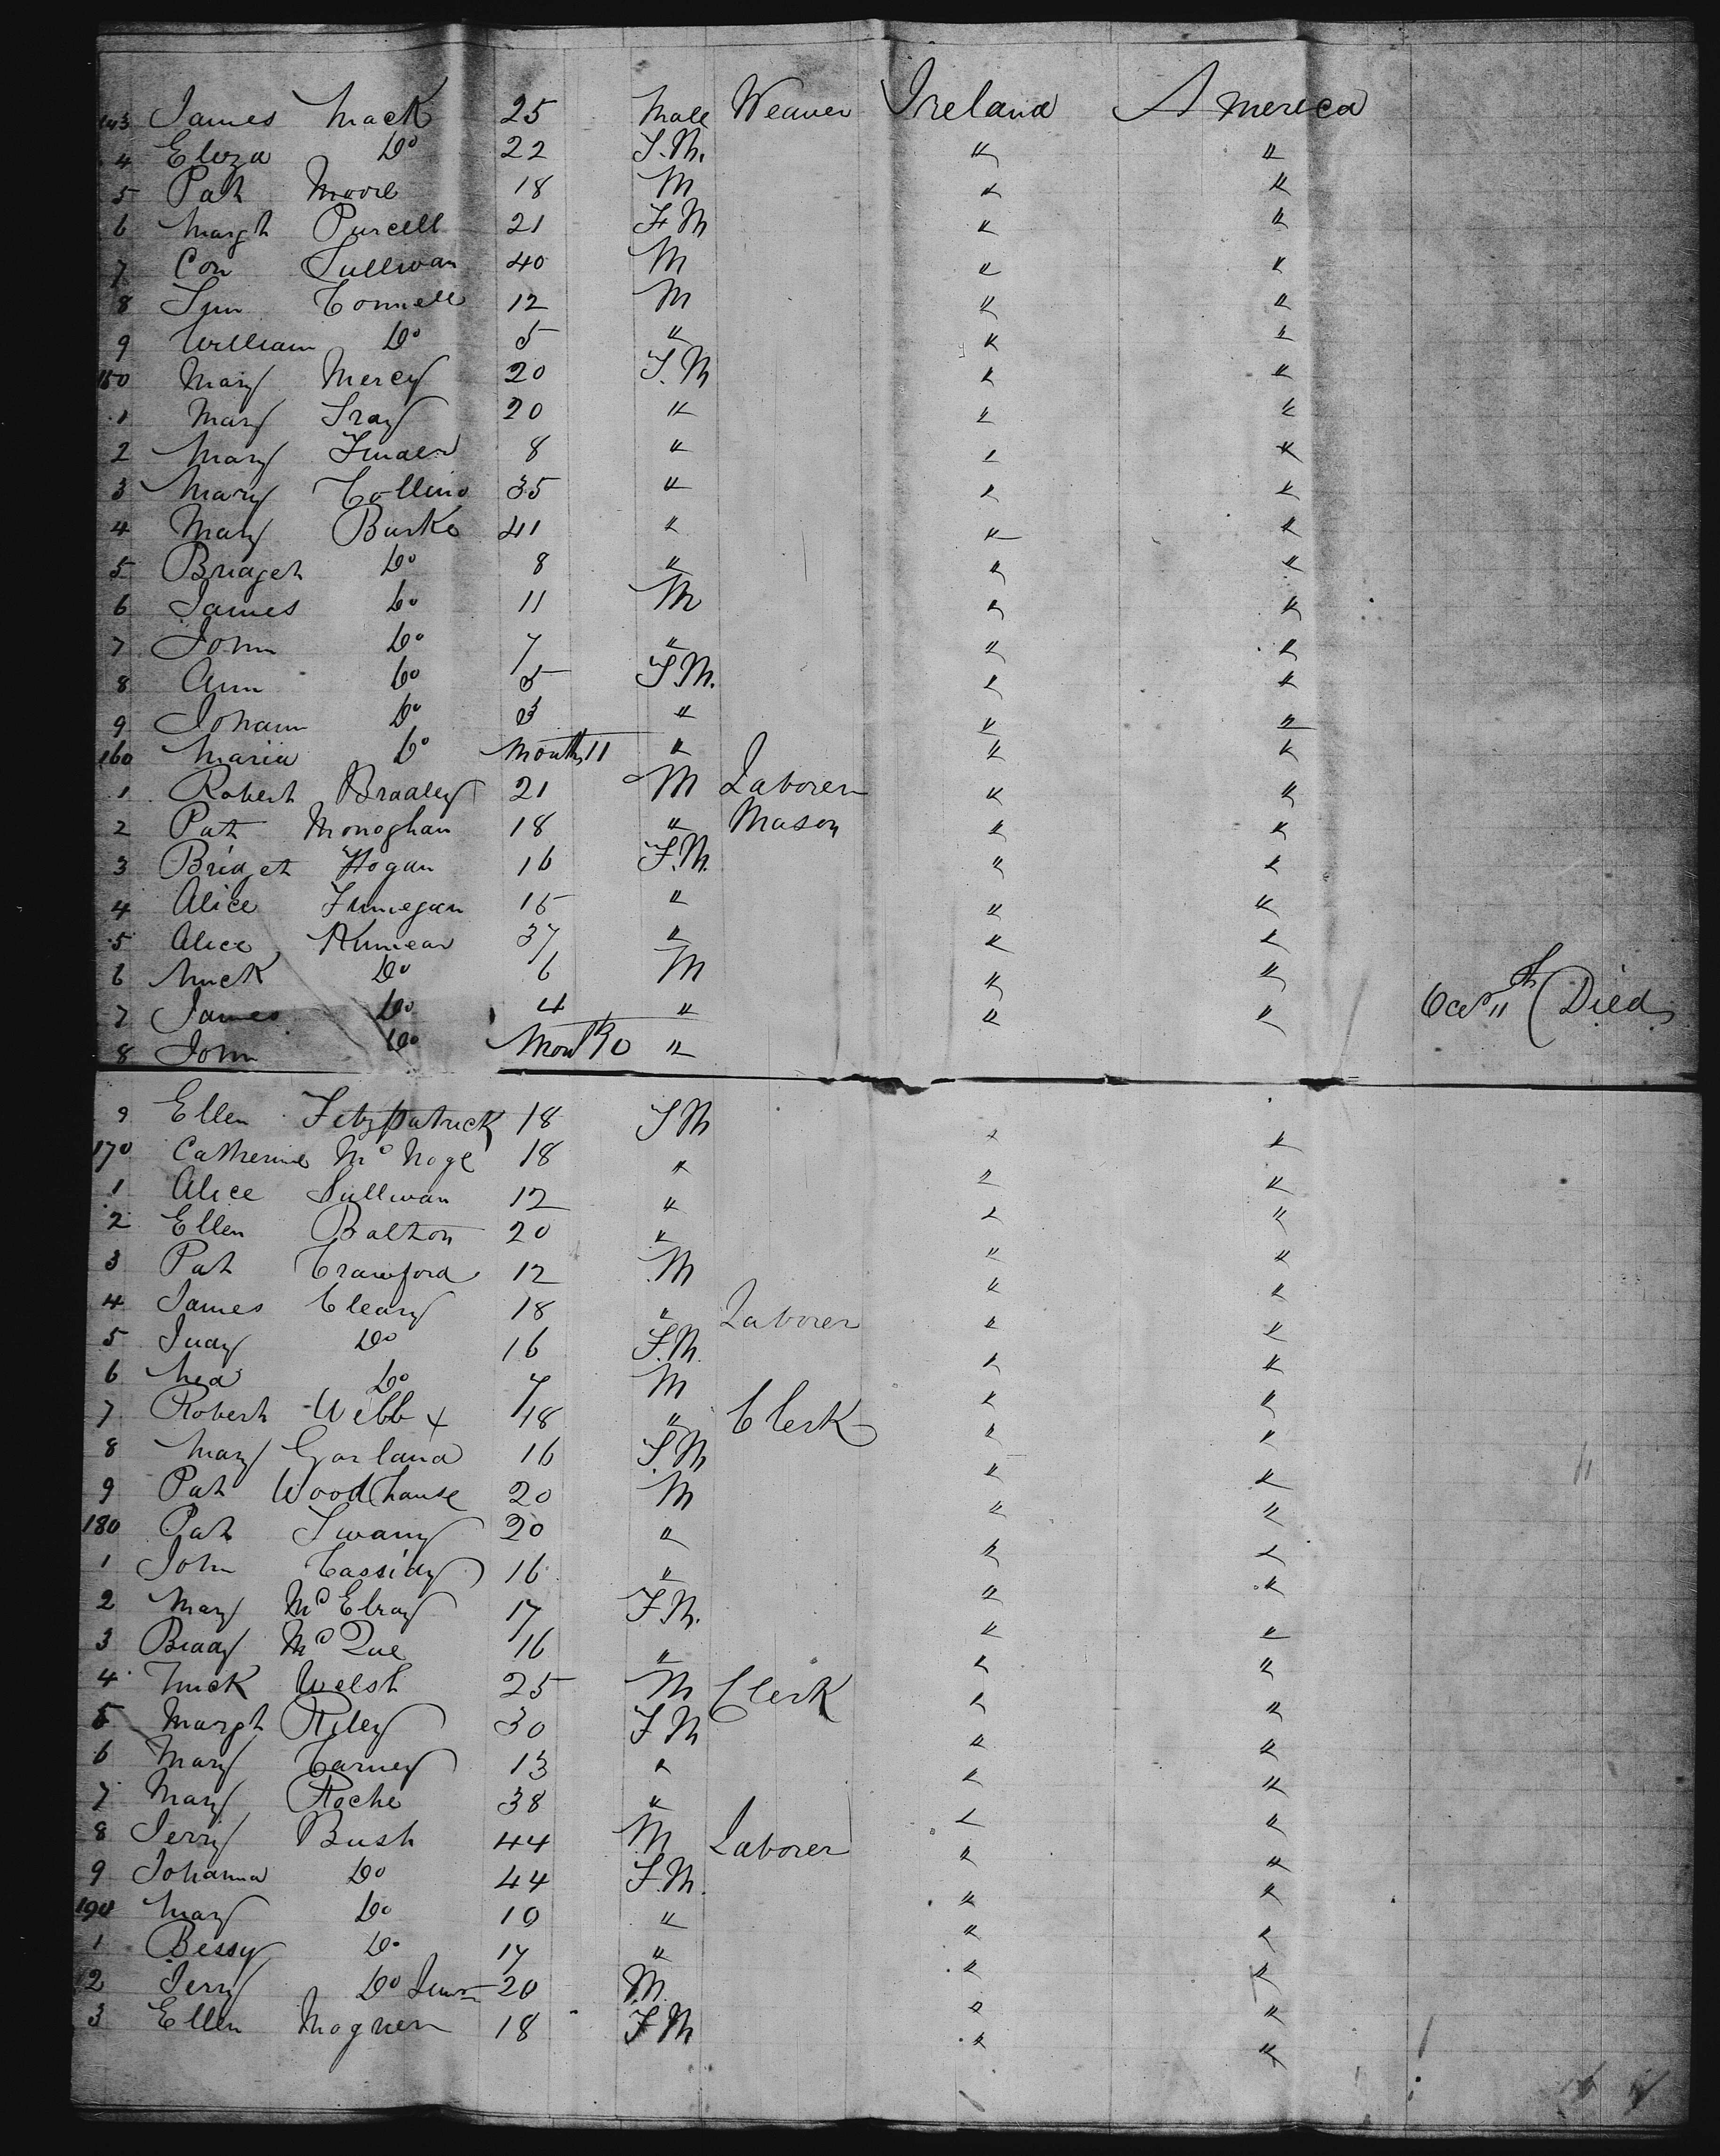 143 James Mack 25 Male Weaver Ireland America
4 Eliza Do 22 F.M. " "
5 Pat Moore 18 M " "
6 Margt Purcell 21 F M " "
7 Con Sullivan 40 M " "
8 Connell 12 M " "
9 William Do 5 " " "
150 Mary Mercy 20 F.M " "
1 Mary 20 " " "
2 Mary 8 " " "
3 Mary Collins 35 " " "
4 Mary Burke 41 " " "
5 Bridget Do 8 " " "
6 James Do 11 M " "
7 John Do 7 " " "
8 Ann Do 5 F.M. " "
9 Johann Do 3 " " "
160 Maria Do Months 11 " " "
1 Robert Bradley 21 M Laborer " "
2 Pat Monoghan 18 " Mason " "
3 Bridget Hogan 16 F.M. " "
4 Alice Finnegan 15 " " "
5 Alice 37 " " "
6 Mick Do 6 M " "
7 James Do 4 " " " Died
8 John Do Month "
9 Ellen Fitzpatrick 18 F M " "
170 Catherine 18 " " "
1 Alice Sullivan 12 " " "
2 Ellen Balton 20 " " "
3 Pat Crawford 12 M " "
4 James Cleary 18 " Laborer " "
5 Judy Do 16 F.M. " "
6 Ned Do 7 M " "
7 Robert Webb x 18 " Clerk " "
8 Mary Garland 16 F.M " "
9 Pat Woodhouse 20 M " "
180 Pat Swany 20 " " "
1 John Cassidy 16 " " "
2 Mary McElroy 17 F.M. " "
3 Biddy McQue 16 " " "
4 Mick Welsh 25 M Clerk " "
5 Margt Riley 30 F M " "
6 Mary Carney 13 " " "
7 Mary Roche 38 " " "
8 Jerry Bush 44 M Laborer " "
9 Johanna Do 44 F.M. " "
190 Mary Do 10 " " "
1 Bessy Do 17 " " "
2 Jerry Do Junr 20 M " "
3 Ellen Magner 18 F M " "